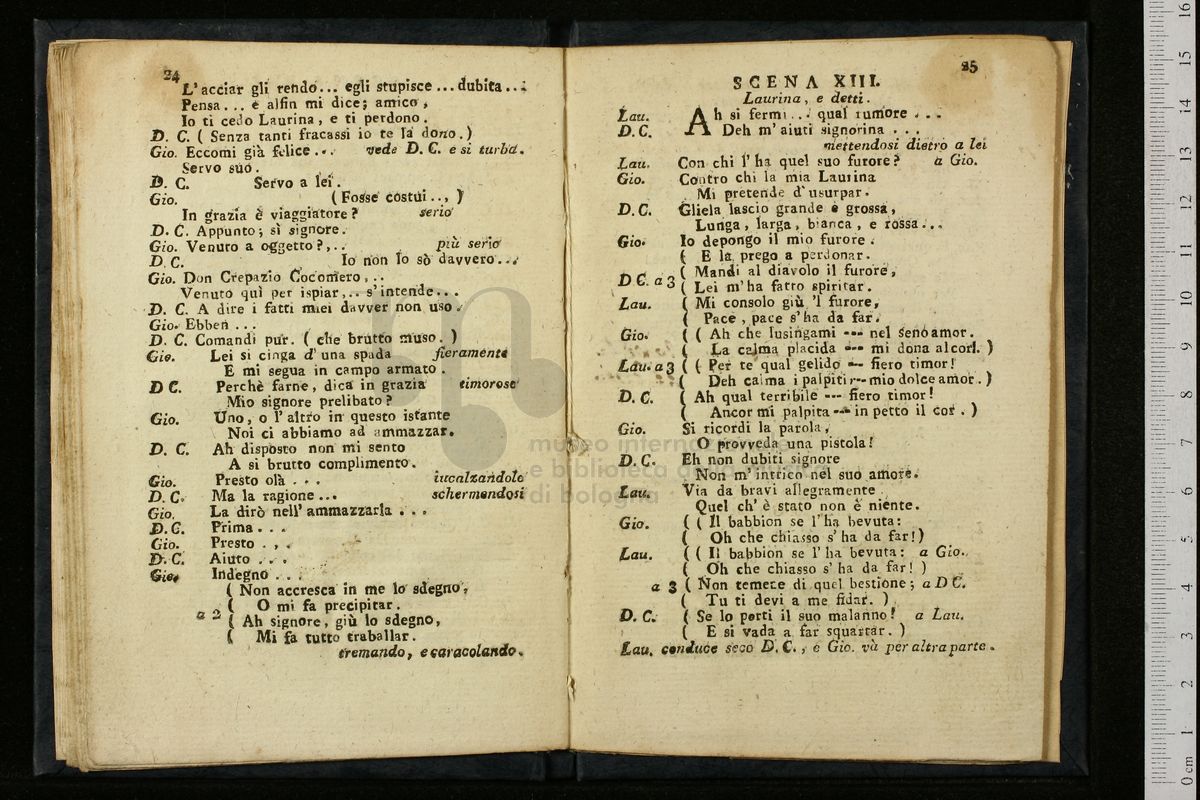 24
L' acciar gli rendo... egli stupisce ... dubita...
Pensa... e alfin mi dice; amico,
Io ti cedo Laurina, e ti perdono.
D. C. ( Senza tanti fracassi io te la dono.)
Gio. Eccomi già felice... vede D. C. e si turba.
Servo suo.
D. C. Servo a lei.
Gio. ( Fosse costui.., )
In grazia è viaggiatore? serio
D. C. Appunto; sì signore.
Gio. Venuto a oggetto?,.. più serio
D. C. Io non lo sò davvero...
Gio. Don Crepazio Cocomero,..
Venuto quì per ispiar,.. s'intende...
D. C. A dire i fatti miei davver non uso.
Gio. Ebben ...
D. C. Comandi pur. ( che brutto muso. )
Gio. Lei si cinga d' una spada fieramente
E mi segua in campo armato.
D C. Perchè farne, dica in grazia timoroso
Mio signore prelibato?
Gio. Uno, o l' altro in questo istante
Noi ci abbiamo ad ammazzar.
D. C. Ah disposto non mi sento
A sì brutto complimento.
Gio. Presto olà ... incalzandolo
D. C. Ma la ragione ... schermendosi
Gio. La dirò nell' ammazzarla ...
D. C. Prima...
Gio. Presto .,.
D. C. Aiuto ...
Gio. Indegno ...
( Non accresca in me lo sdegno,
( O mi fa precipitar.
a 2 ( Ah signore, giù lo sdegno,
( Mi fa tutto traballar.
tremando, e caracolando.
25
SCENA XIII.
Laurina, e detti.
Lau. Ah si fermi... qual rumore ...
D. C. Deh m' aiuti signorina ...
mettendosi dietro a lei
Lau. Con chi l' ha quel suo furore? a Gio.
Gio. Contro chi la mia Laurina
Mi pretende d' usurpar.
D. C. Gliela lascio grande e grossa,
Lunga, larga, bianca, e rossa...
Gio. Io depongo il mio furore.
( E la prego a perdonar.
D C. a 3 ( Mandi al diavolo il furore,
( Lei m'ha fatto spiritar.
Lau. ( Mi consolo giù 'l furore,
( Pace, pace s'ha da far.
Gio. ( ( Ah che lusingami --- nel seno amor.
( La calma placida --- mi dona al cor. )
Lau. a 3 ( ( Per te qual gelido --- fiero timor!
( Deh calma i palpiti --- mio dolce amor. )
D. C. ( Ah qual terribile --- fiero timor!
( Ancor mi palpita --- in petto il cor. )
Gio. Si ricordi la parola,
O provveda una pistola!
D. C. Eh non dubiti signore
Non m' intrico nel suo amore.
Lau. Via da bravi allegramente
Quel ch' è stato non è niente.
Gio. ( ( Il babbion se l' ha bevuta:
( Oh che chiasso s' ha da far!)
Lau. ( ( Il babbion se l' ha bevuta: a Gio.
( Oh che chiasso s' ha da far! )
a 3 ( Non temete di quel bestione; a D C.
( Tu ti devi a me fidar. )
D. C. ( Se lo porti il suo malanno! a Lau.
( E si vada a far squartar. )
Lau. conduce seco D. C., e Gio. và per altra parte.
museo internazionale
e biblioteca della musica
di bologna
0 cm 1 2 3 4 5 6 7 8 9 10 11 12 13 14 15 16